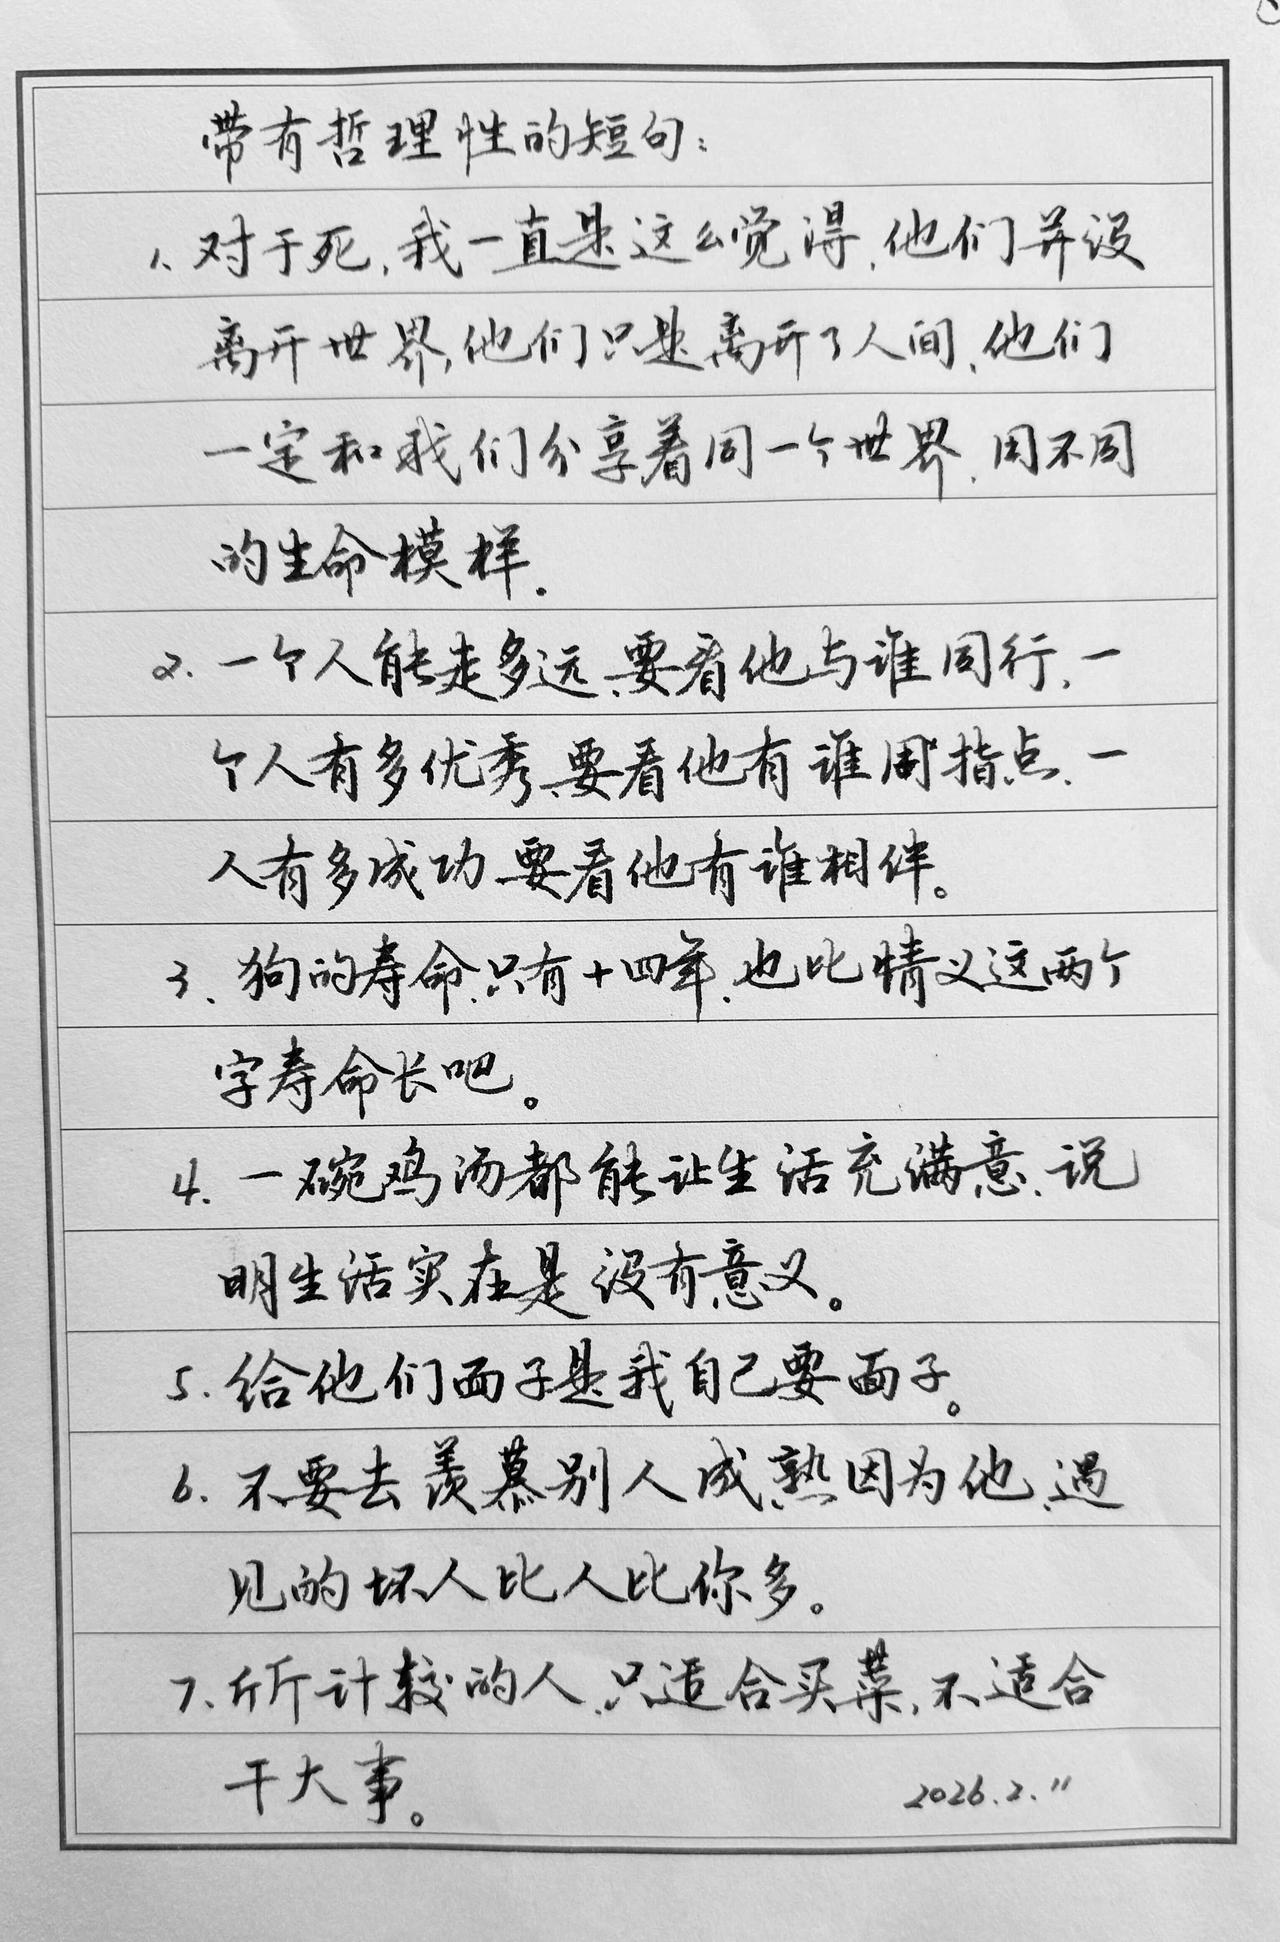 带有哲理性的短句：
1、对于死，我一直是这么觉得，他们并没
离开世界，他们只是离开了人间、他们
一定和我们分享着同一个世界、用不同
的生命模样.
2. 一个人能走多远、要看他与谁同行、一
个人有多优秀、要看他有谁周指点、一
人有多成功 要看他有谁相伴。
3、狗的寿命、只有十四年、也比情义这两个
字寿命长吧。
4. 一碗鸡汤都能让生活充满意、说
明生活实在是没有意义。
5. 给他们面子是我自己要面子。
6. 不要去羡慕别人成熟因为他、遇
见的坏人比人比你多。
7、斤斤计较的人、只适合买菜，不适合
干大事。
2026.2.11